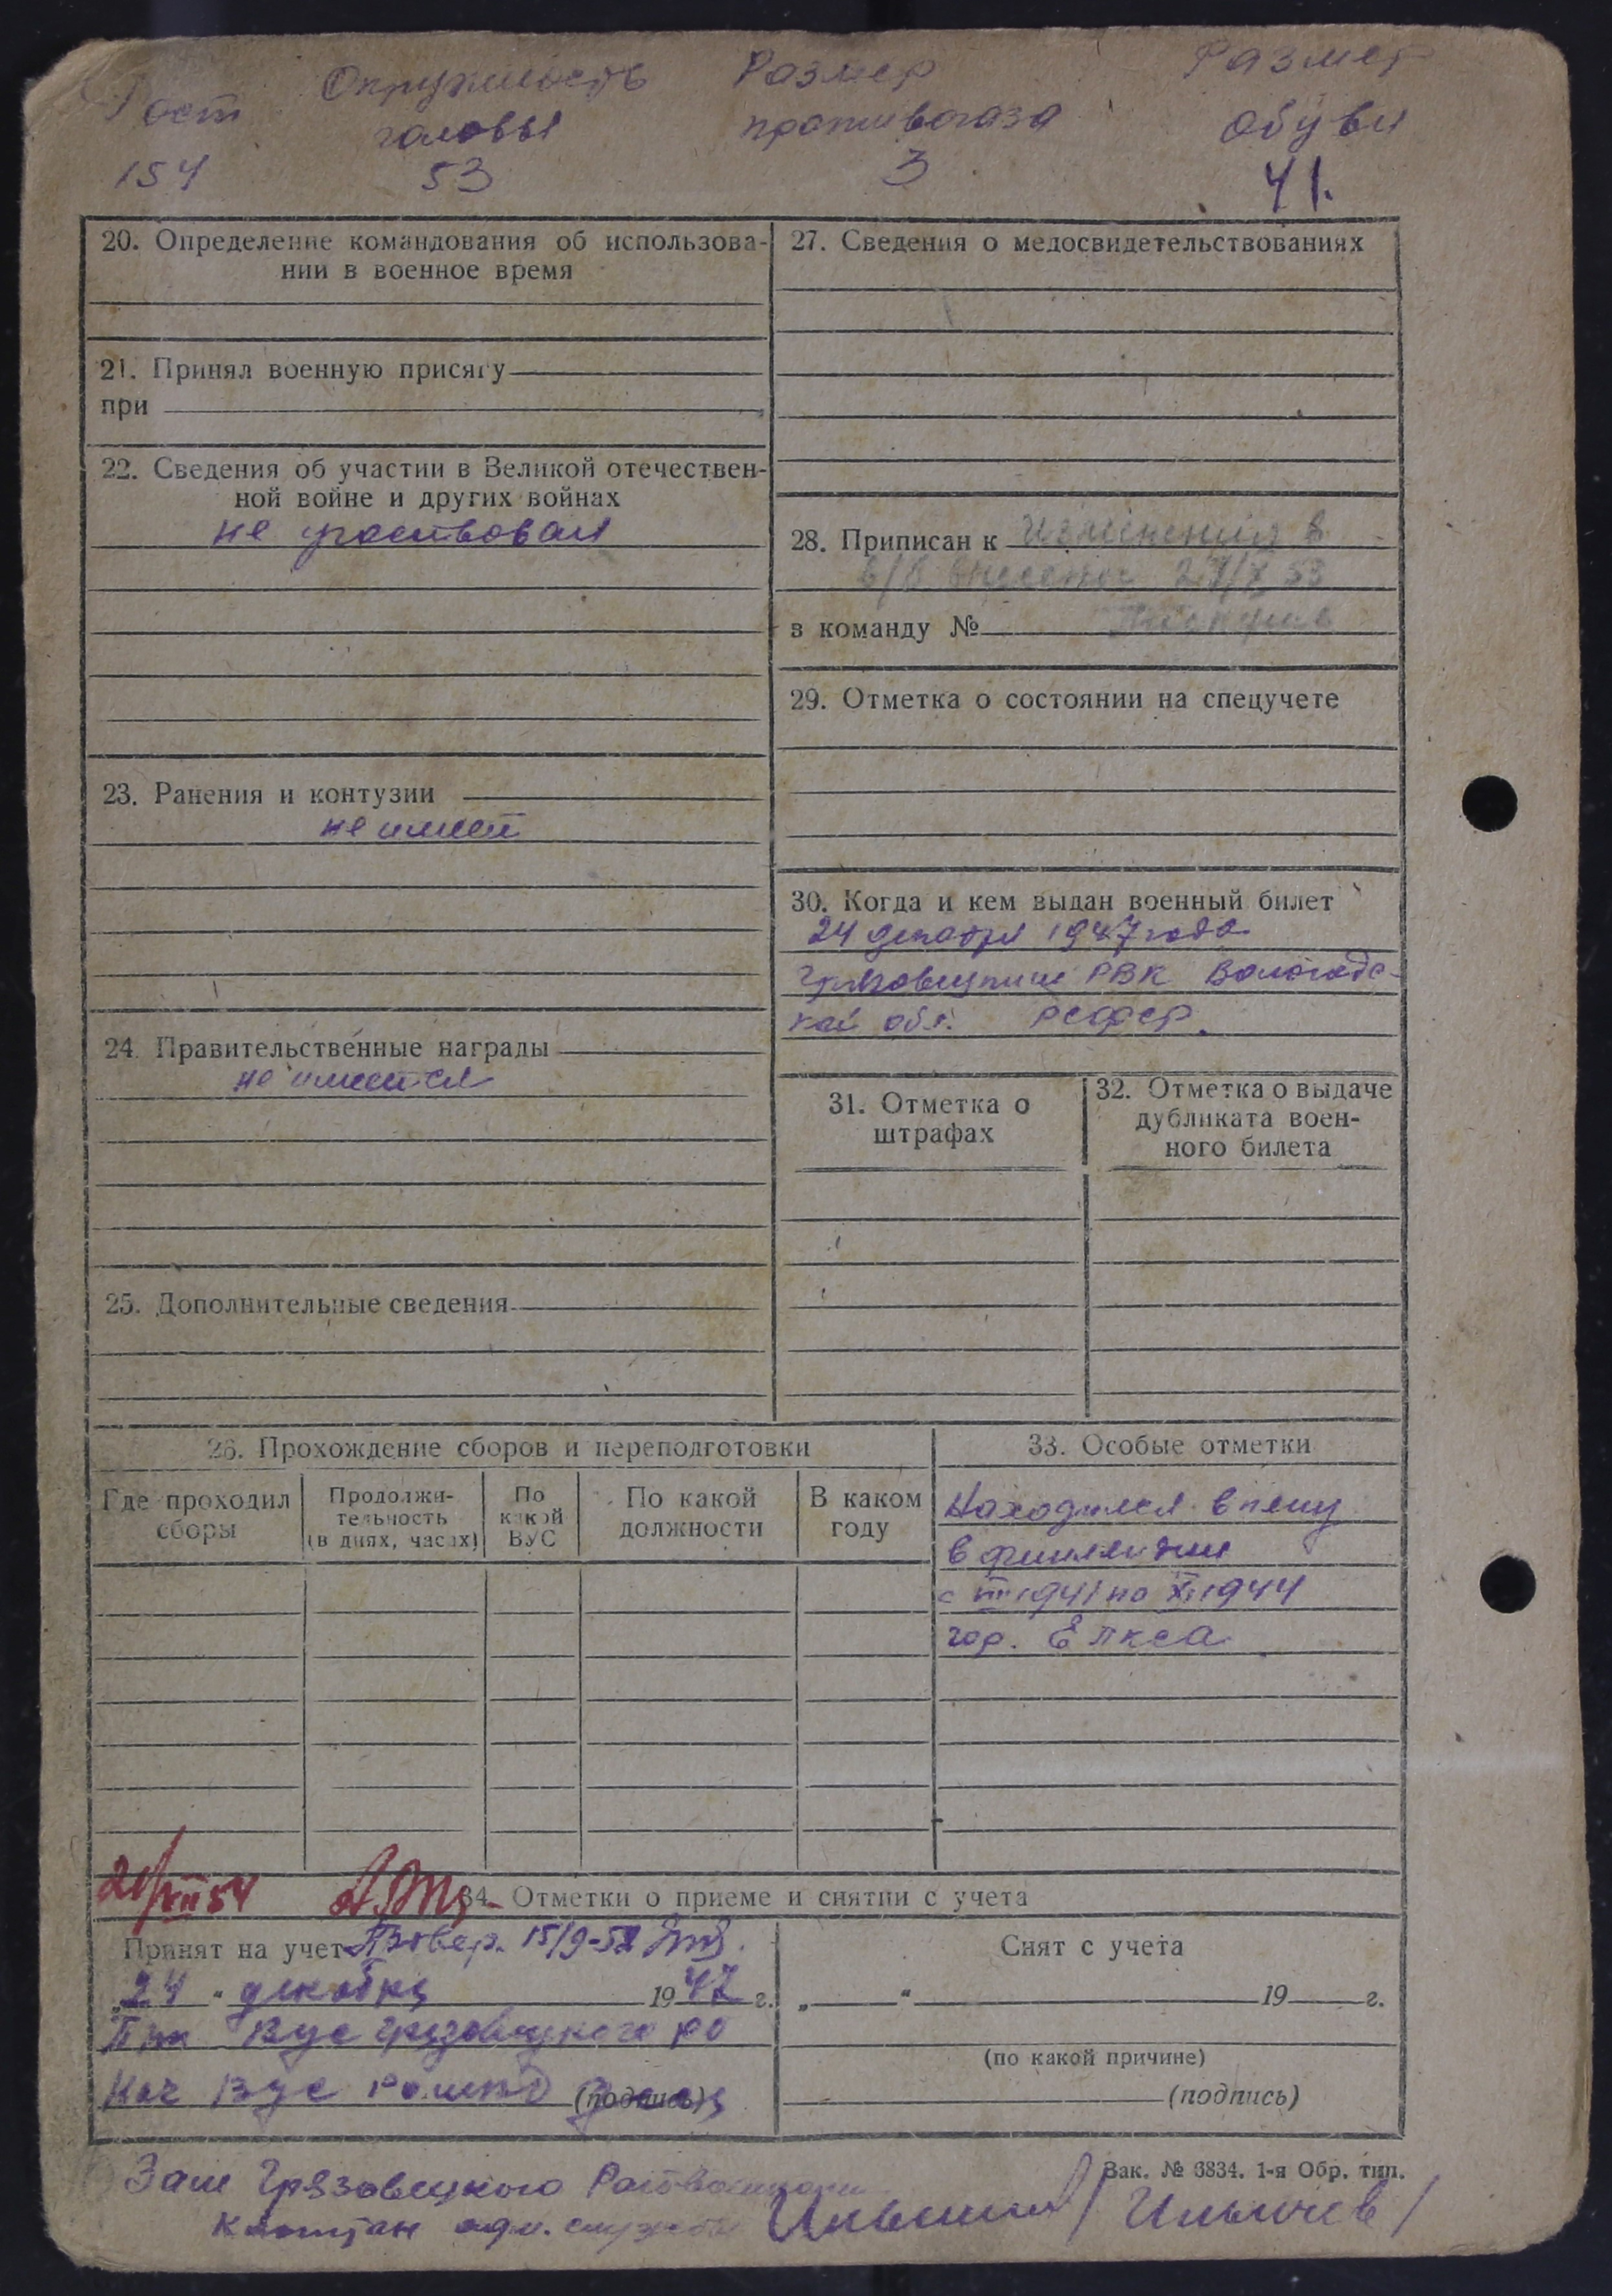 Рост Окружность Размер Размер
головы противогаза обуви
154 53 3 41.
20. Определение командования об использова-
нии в военное время
21. Принял военную присягу
при
22. Сведения об участии в Великой отечествен-
ной войне и других войнах
не участвовал
23. Ранения и контузии
не имеет
24. Правительственные награды
не имеется
25. Дополнительные сведения
27. Сведения о медосвидетельствованиях
28. Приписан к Изменения в
в/б внесены 53
в команду №
29. Отметка о состоянии на спецучете
30. Когда и кем выдан военный билет
24 декабря 1947 года
Грязовецким РВК Вологодс-
кой обл. РСФСР.
31. Отметка о
штрафах
32. Отметка о выдаче
дубликата воен-
ного билета
26. Прохождение сборов и переподготовки
Где проходил
сборы
Продолжи-
тельность
(в днях, часах)
По
какой
ВУС
По какой
должности
В каком
году
33. Особые отметки
Находился в плену
в финляндии
с 1941 по XI 1944
гор.
VII 54
34. Отметки о приеме и снятии с учета
Принят на учет Провер. 15/9-52
„24 " декабря 1947 г.
ВУС Грязовецкого РО
Нач ВУС (подпись)
Снят с учета
„ " 19 г.
(по какой причине)
(подпись)
Зак. № 3834. 1-я Обр. тип.
Зам Грязовецкого Райвоенкома
капитан адм. службы /Ильичев/